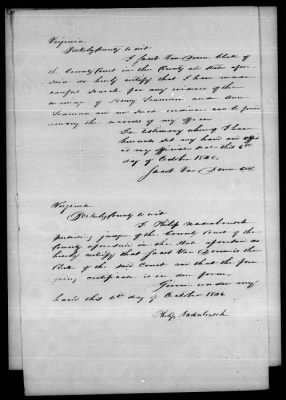 Virginia
Berkeley County to wit
I Jacob Van Doren Clerk of
the County Court in the County and State afore
said do hereby certify that I have made
careful search for any evidence of the
marriage of Henry and Ann
and no such evidence can be found
among the records of my office
In testimony whereof I have
hereunto set my hand and affix
ed my official seal this 6th
day of October 1846.
Jacob Van Doren Clk
Virginia
Berkeley County to wit
I Philip Nadenbousch
presiding judge of the County Court of the
County aforesaid in the State aforesaid do
hereby certify that Jacob Van Doren is the
Clerk of the said Court and that the fore
going certificate is in due form.
Given under my
hand this 6th day of October 1846
Philip Nadenbousch